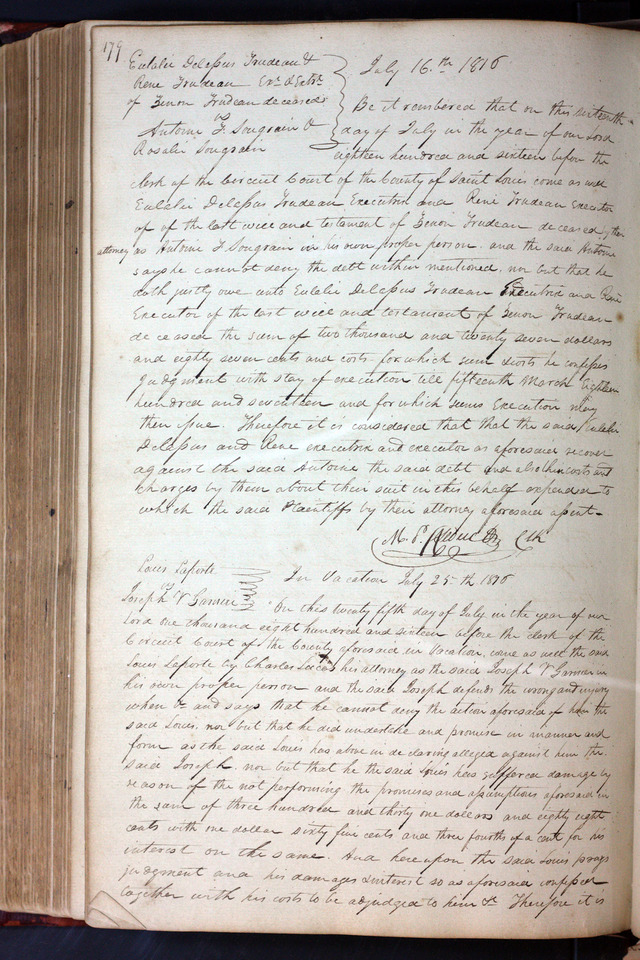 179
Eulalie Delassus Trudeau &
Rene Trudeau Exr & Extrx
of Zenon Trudeau deceased
vs
Antoine F. Sougrain &
Rosalie Sougrain
July 16.th 1816
Be it rembered that on this sixteenth
day of July in the year of our Lord
eighteen hundred and sixteen before the
clerk of the Circuit Court of the County of Saint Louis come as well
Eulalie Delassus Trudeau Executrix and René Trudeau Executor
of of the last will and testament of Zenon Trudeau deceased by their
attorney as Antoine F Sougrain in his own proper person. and the said Antoine
says he cannot deny the debt within mentioned, nor but that he
doth justly owe unto Eulalie Delassus Trudeau Executrix and René
Executor of the last will and testament of Zenon Trudeau
deceased the sum of two thousand and twenty seven dollars
and eighty seven cents and costs for which sum & costs he confesses
Judgment with stay of execution till fifteenth March Eighteen
hundred and seventeen and for which sums Execution may
then issue. Therefore it is considered that that the said Eulalie
Delassus and Rene executrix and executor as aforesaid recover
against the said Antoine the said debt and also their costs and
charges by them about their suit in this behalf expended to
which the said Plaintiffs by their attorney aforesaid assent.
M. P. Leduc Clk
Louis Laporte
vs
Joseph V Garnier
In Vacation July 25.th 1816
On this twenty fifth day of July in the year of our
Lord one thousand eight hundred and sixteen before the clerk of the
Circuit Court of the County aforesaid in Vacation, came as well the said
Louis Laporte by Charles Lucas his attorney as the said Joseph V Garnier in
his own proper person and the said Joseph defends the wrong and injury
when &c and says that he cannot deny the action aforesaid of him the
said Louis. nor but that he did undertake and promise in manner and
form as the said Louis has above in declaring alleged against him the
said Joseph, nor but that he the said Louis has suffered damage by
reason of the not performing the promises and assumptions aforesaid in
the sum of three hundred and thirty one dollars and eighty eight
cents with one dollar sixty five cents and three fourths of a cent for his
interest on the same. And hereupon the said Louis prays
judgment and his damages & interest so as aforesaid confessed
together with his costs to be adjudged to him &c Therefore it is